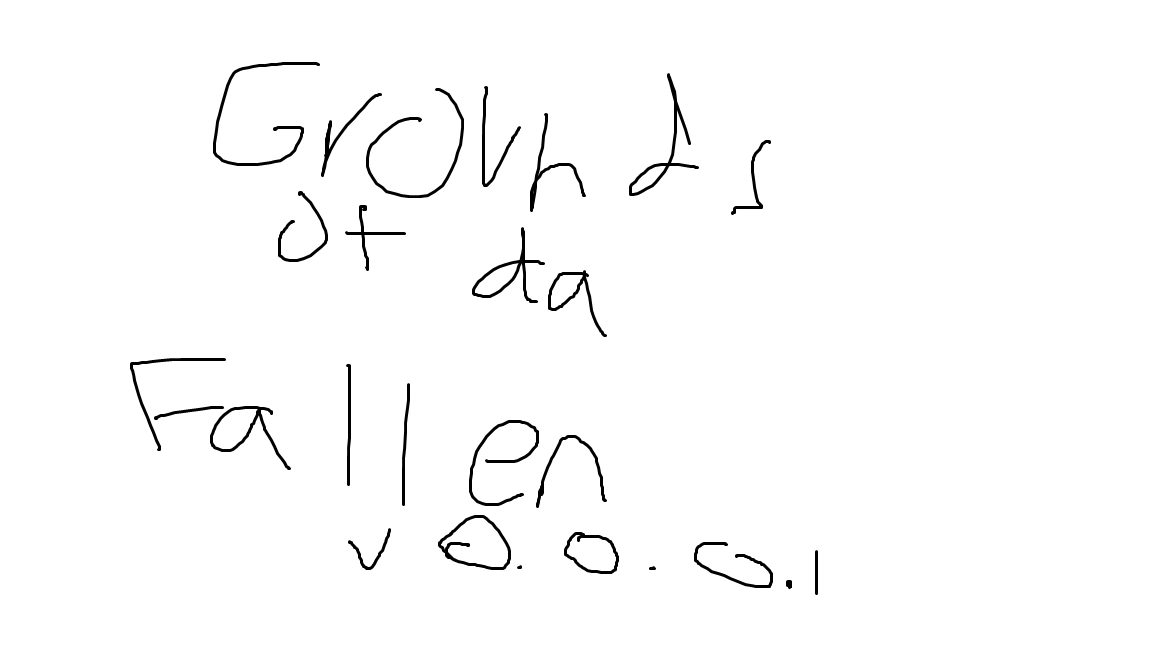 Grounds
of da
Fallen
v 0.0.0.1